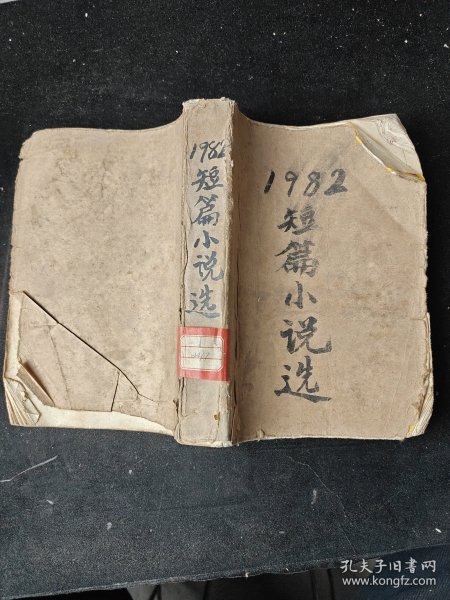 1982
短篇小说选
1982
短篇小说选
孔夫子旧书网
www.kongfz.com